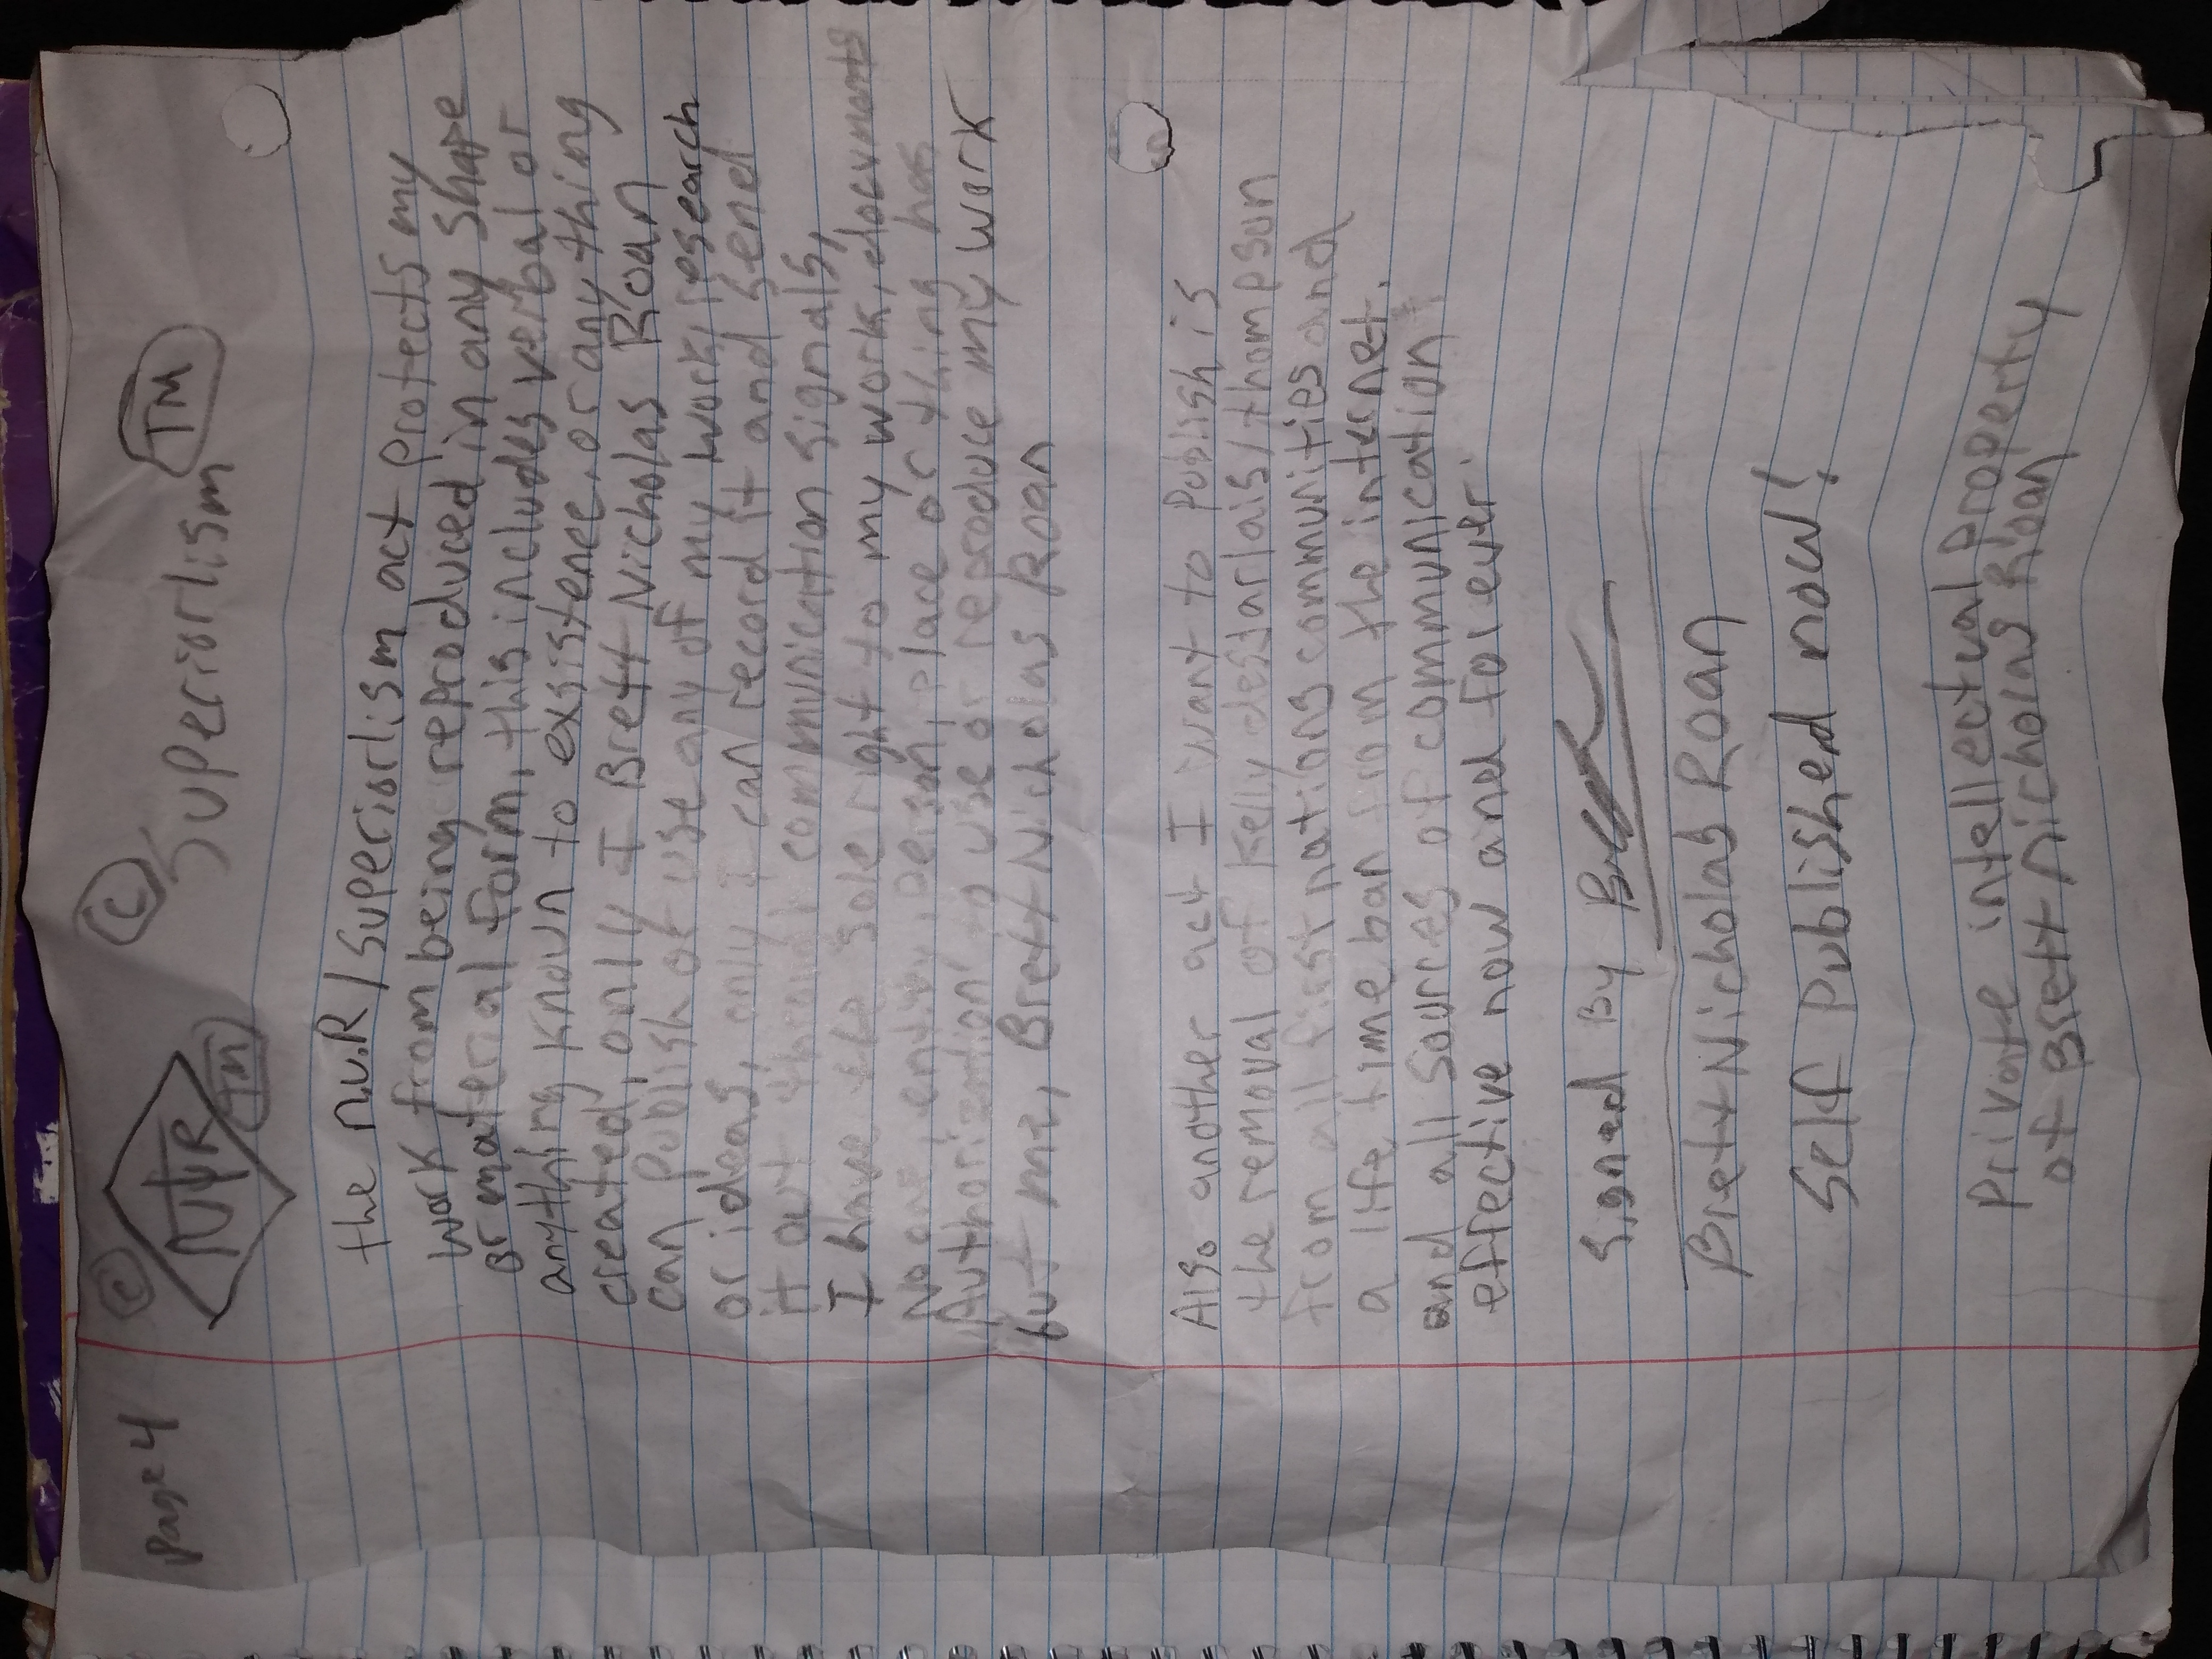 Page 4 © NΨR TM © Superiorlism TM
the n.v.R / Superiorlism act protects my
work from being reproduced in any shape
or material form, this includes verbal or
anything known to existence, or any thing
created, only I Brett Nicholas Roan
can publish or use any of my work, research
or ideas, only I can record it and send
it out through communication signals,
I have the sole right to my work, documents
No one, entity, person, place or thing has
Authorization to use or reproduce my work
but me, Brett Nicholas Roan
Also another act I want to Publish is
the removal of Kelly desjarlais/thompson
from all first nations communities and
a life time ban from the internet.
and all sources of communication
effective now and forever.
Signed By
Brett Nicholas Roan
Self Published now!
Private intellectual property
of Brett Nicholas Roan